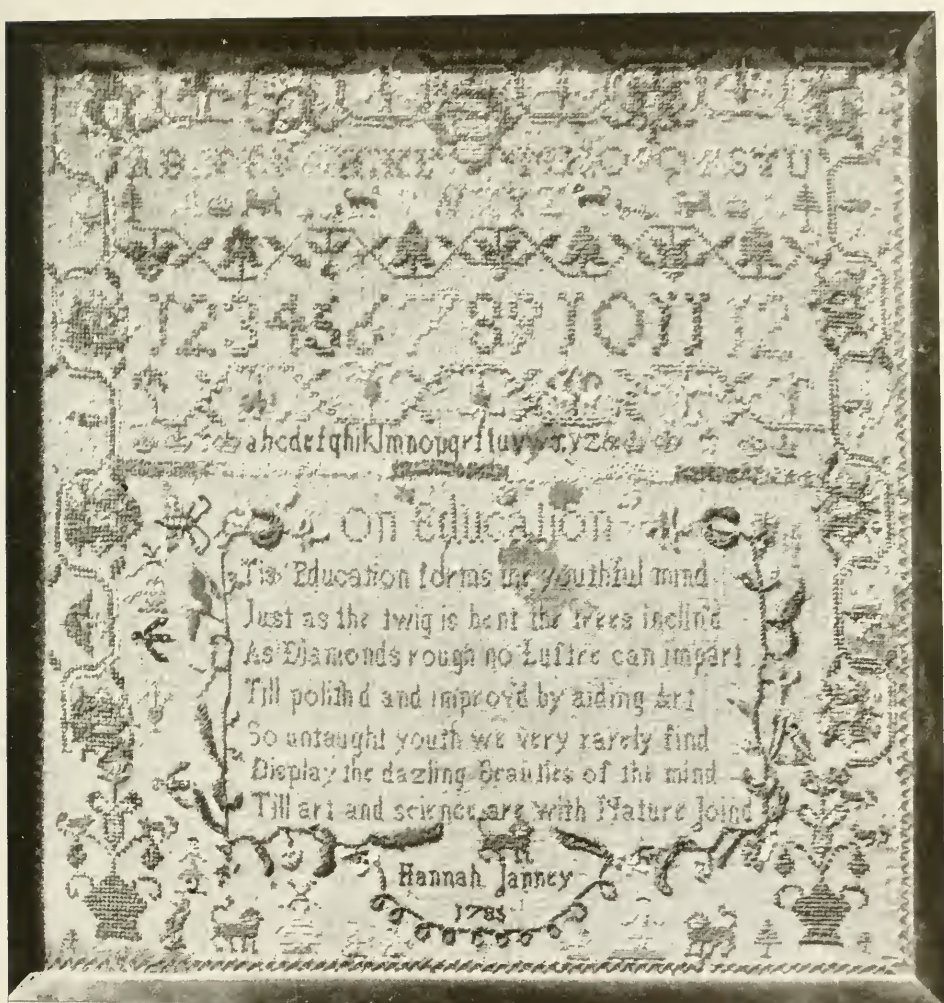 1 2 3 4 5 6 7 8 9 10 11 12
abcdefghiklmnopqrſtuvwxyz
On Education
Tis Education forms the youthful mind
Just as the twig is bent the Trees inclin'd
As Diamonds rough no Luſtre can impart
Till poliſh'd and improv'd by aiding Art
So untaught youth we very rarely find
Display the dazling Beauties of the mind
Till art and science are with Nature Joind
Hannah Janney
1785